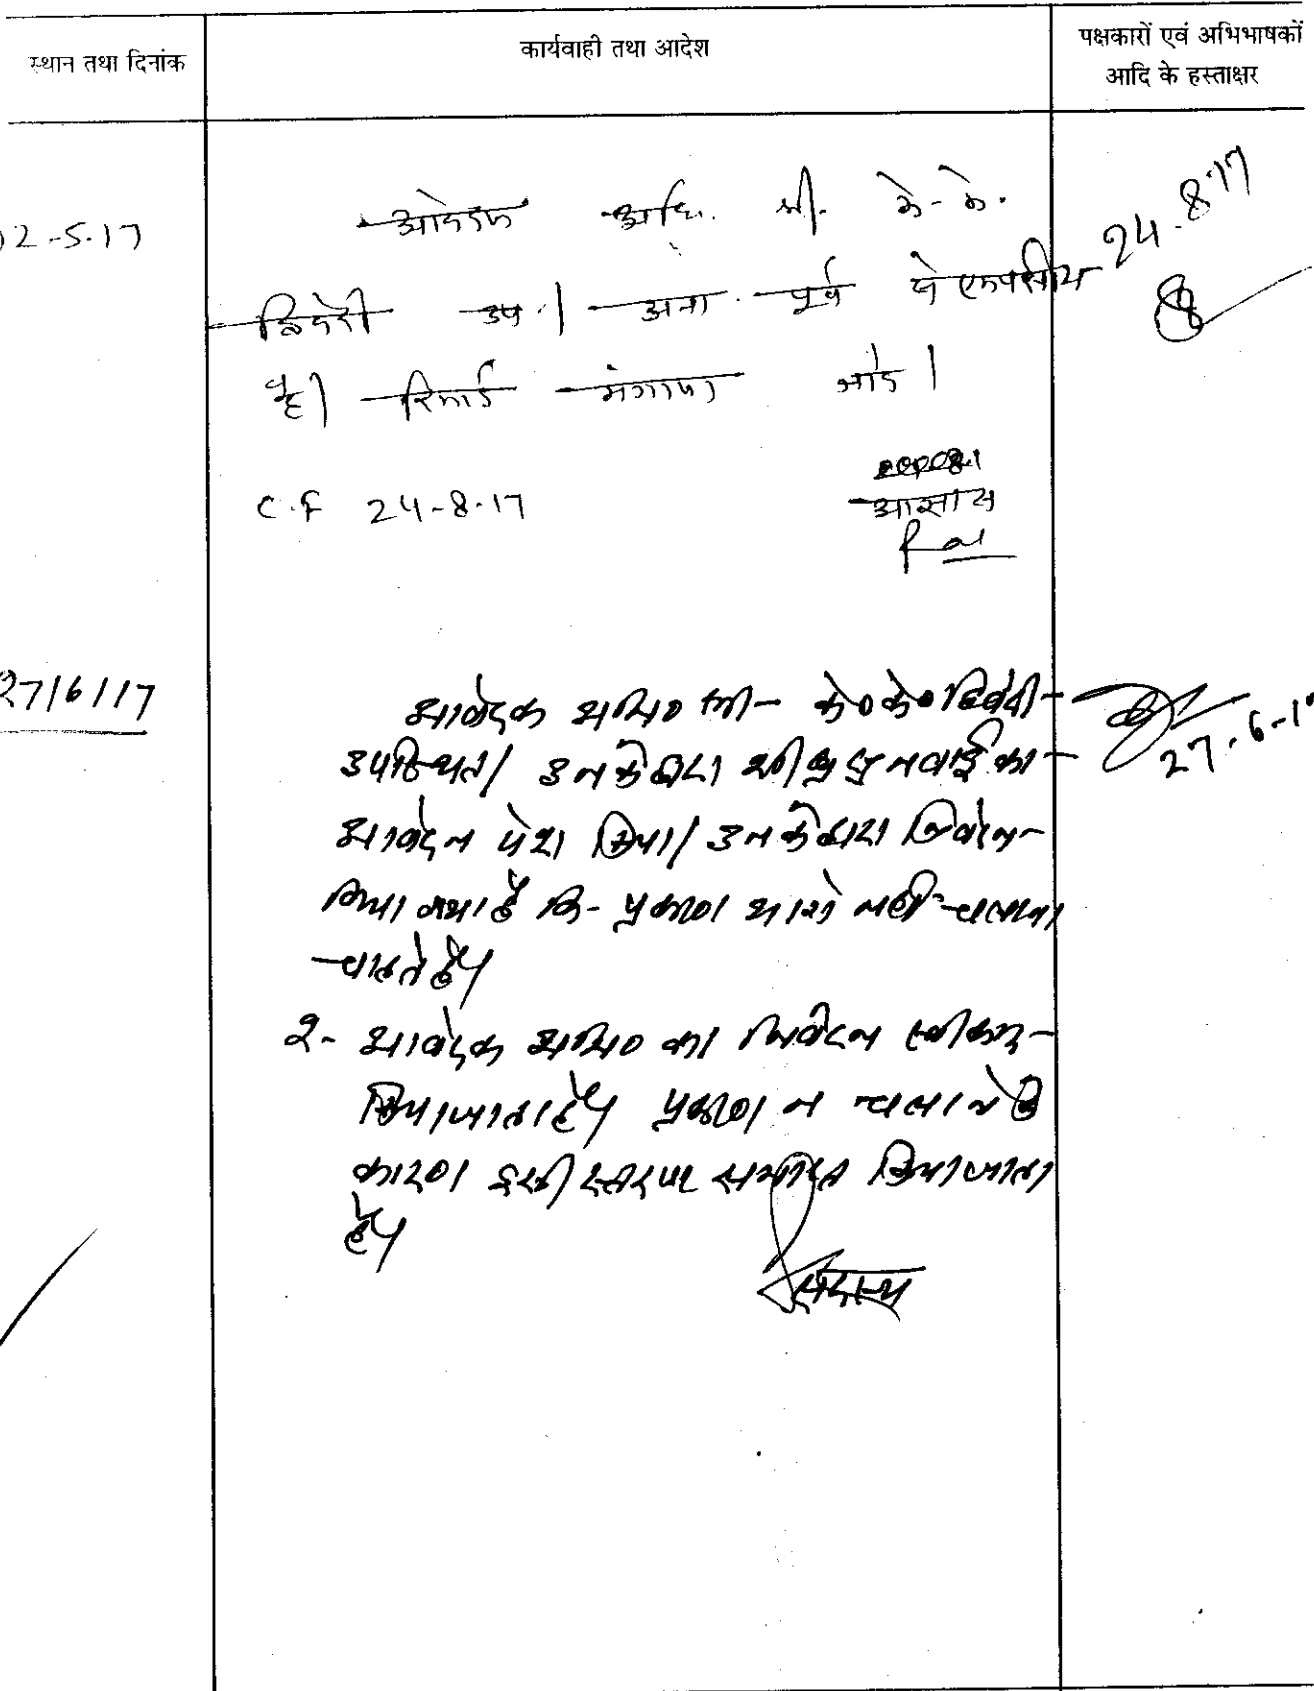 स्थान तथा दिनांक
कार्यवाही तथा आदेश
पक्षकारों एवं अभिभाषकों
आदि के हस्ताक्षर
2-5-17
आवेदक अभि. श्री. के-के.
द्विवेदी उप.। अना. पूर्व से एकपक्षीय
है। रिकार्ड मंगाया जावे।
24-8-17
C.F 24-8-17
27/6/17
आवेदक अभि० श्री- के०के० द्विवेदी-
उपस्थित/ उनके द्वारा शीघ्र सुनवाई का-
आवेदन पेश किया/ उनके द्वारा निवेदन-
किया गया है कि- प्रकरण आगे नहीं चलाना
चाहते है।
27-6-1
2- आवेदक अभि० का निवेदन स्वीकार-
किया जाता है। प्रकरण न चलाने के
कारण इसी स्तर पर समाप्त किया जाता
है।
सदस्य